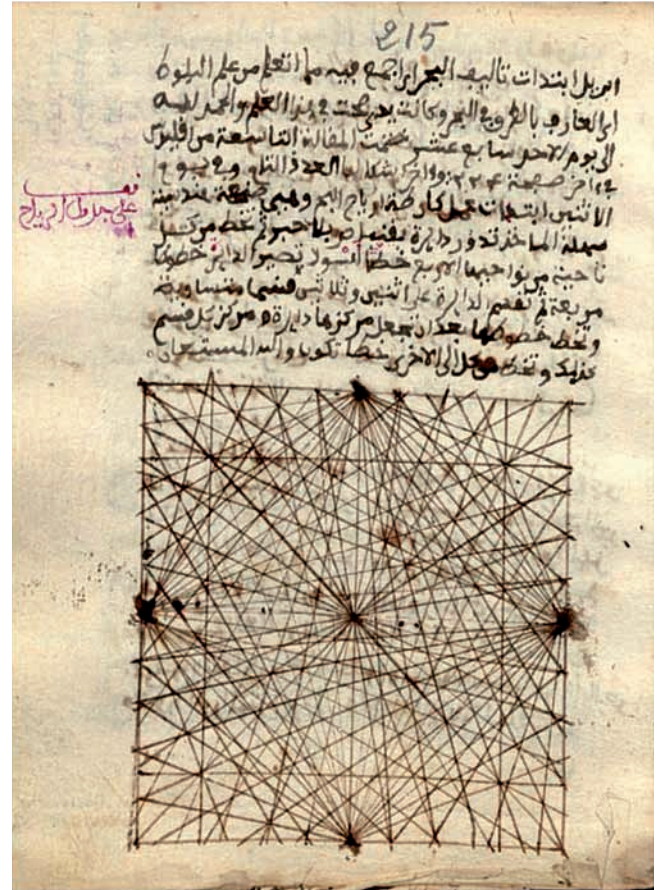 215
ابريل ابتدات تاليف البحر اجمع فيه ما اتعلم من علم البلوط
اي العارف بالطرق في البحر وكانت في هذا العلم والحمد لله
الى يوم الاحد سابع عشر ختمت المقالة التاسعة من
في اخر صحيفة ٢٢٤ واخر العدد وفي يوم
الاثنين ابتدات عمل كارطة ارياح البحر وهي صنعة هندسية
سهلة الماخذ تدور دايرة حبر ثم تخط من كل
ناحية من نواحيها الاربع خطا اسود تصير الدايرة خطوطها
مربعة ثم تقسم الدايرة على اثنين وثلاثين قسما متساوية
وتخط خطوطها بعد ان تجعل مركزها دايرة ومركز كل قسم
كذلك وتخط من كل الى الاخرى خطا والله المستعان
قف
على جدول الارياح